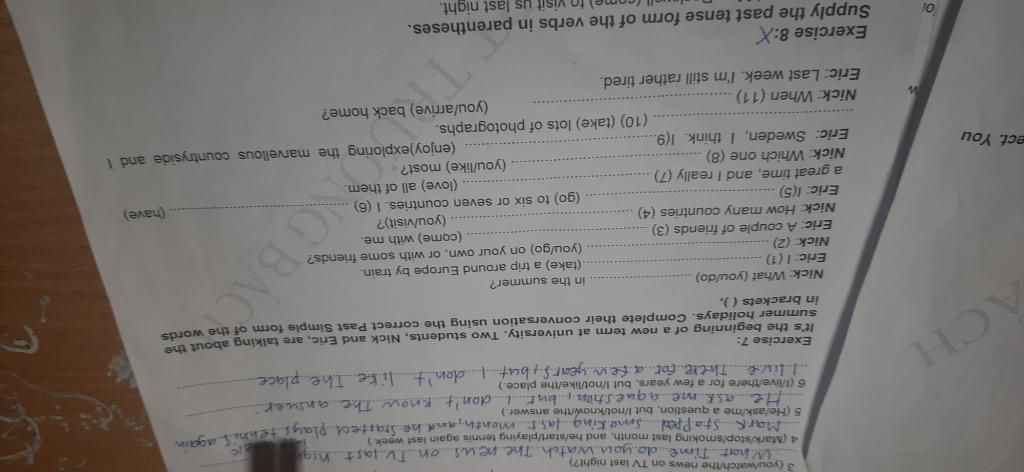 3 (you/watch/the news on TV last night?)
What Time do you watch The news on TV last nigh
4 (Mark/stop/smoking last month, and he/start/playing tennis again last week.)
Mark stopped smoking last month, and he started plays tennis again
5 (He/ask/me a question, but I/not/know/the answer.)
He ask me a question, but I don't know The answer
6 (I/live/there for a few years, but I/not/like/the place.)
I live There for a few years, but I don't like The place
Exercise 7:
It's the beginning of a new term at university. Two students, Nick and Eric, are talking about the
summer holidays. Complete their conversation using the correct Past Simple form of the words
in brackets ( ).
Nick: What (you/do) ........................ in the summer?
Eric: I (1) ........................ (take) a trip around Europe by train.
Nick: (2) ........................ (you/go) on your own, or with some friends?
Eric: A couple of friends (3) ........................ (come) with me.
Nick: How many countries (4) ........................ (you/visit)?
Eric: I(5) ........................ (go) to six or seven countries. I (6) ........................ (have)
a great time, and I really (7) ........................ (love) all of them.
Nick: Which one (8) ........................ (you/like) most?
Eric: Sweden, I think. I(9........................ (enjoy)exploring the marvellous countryside and I
........................ (10) (take) lots of photographs.
Nick: When (11) ........................ (you/arrive) back home?
Eric: Last week. I'm still rather tired.
Exercise 8: X
Supply the past tense form of the verbs in parentheses.
(come) to visit us last night.
ect. You
w
TRUONG BACH
ACH